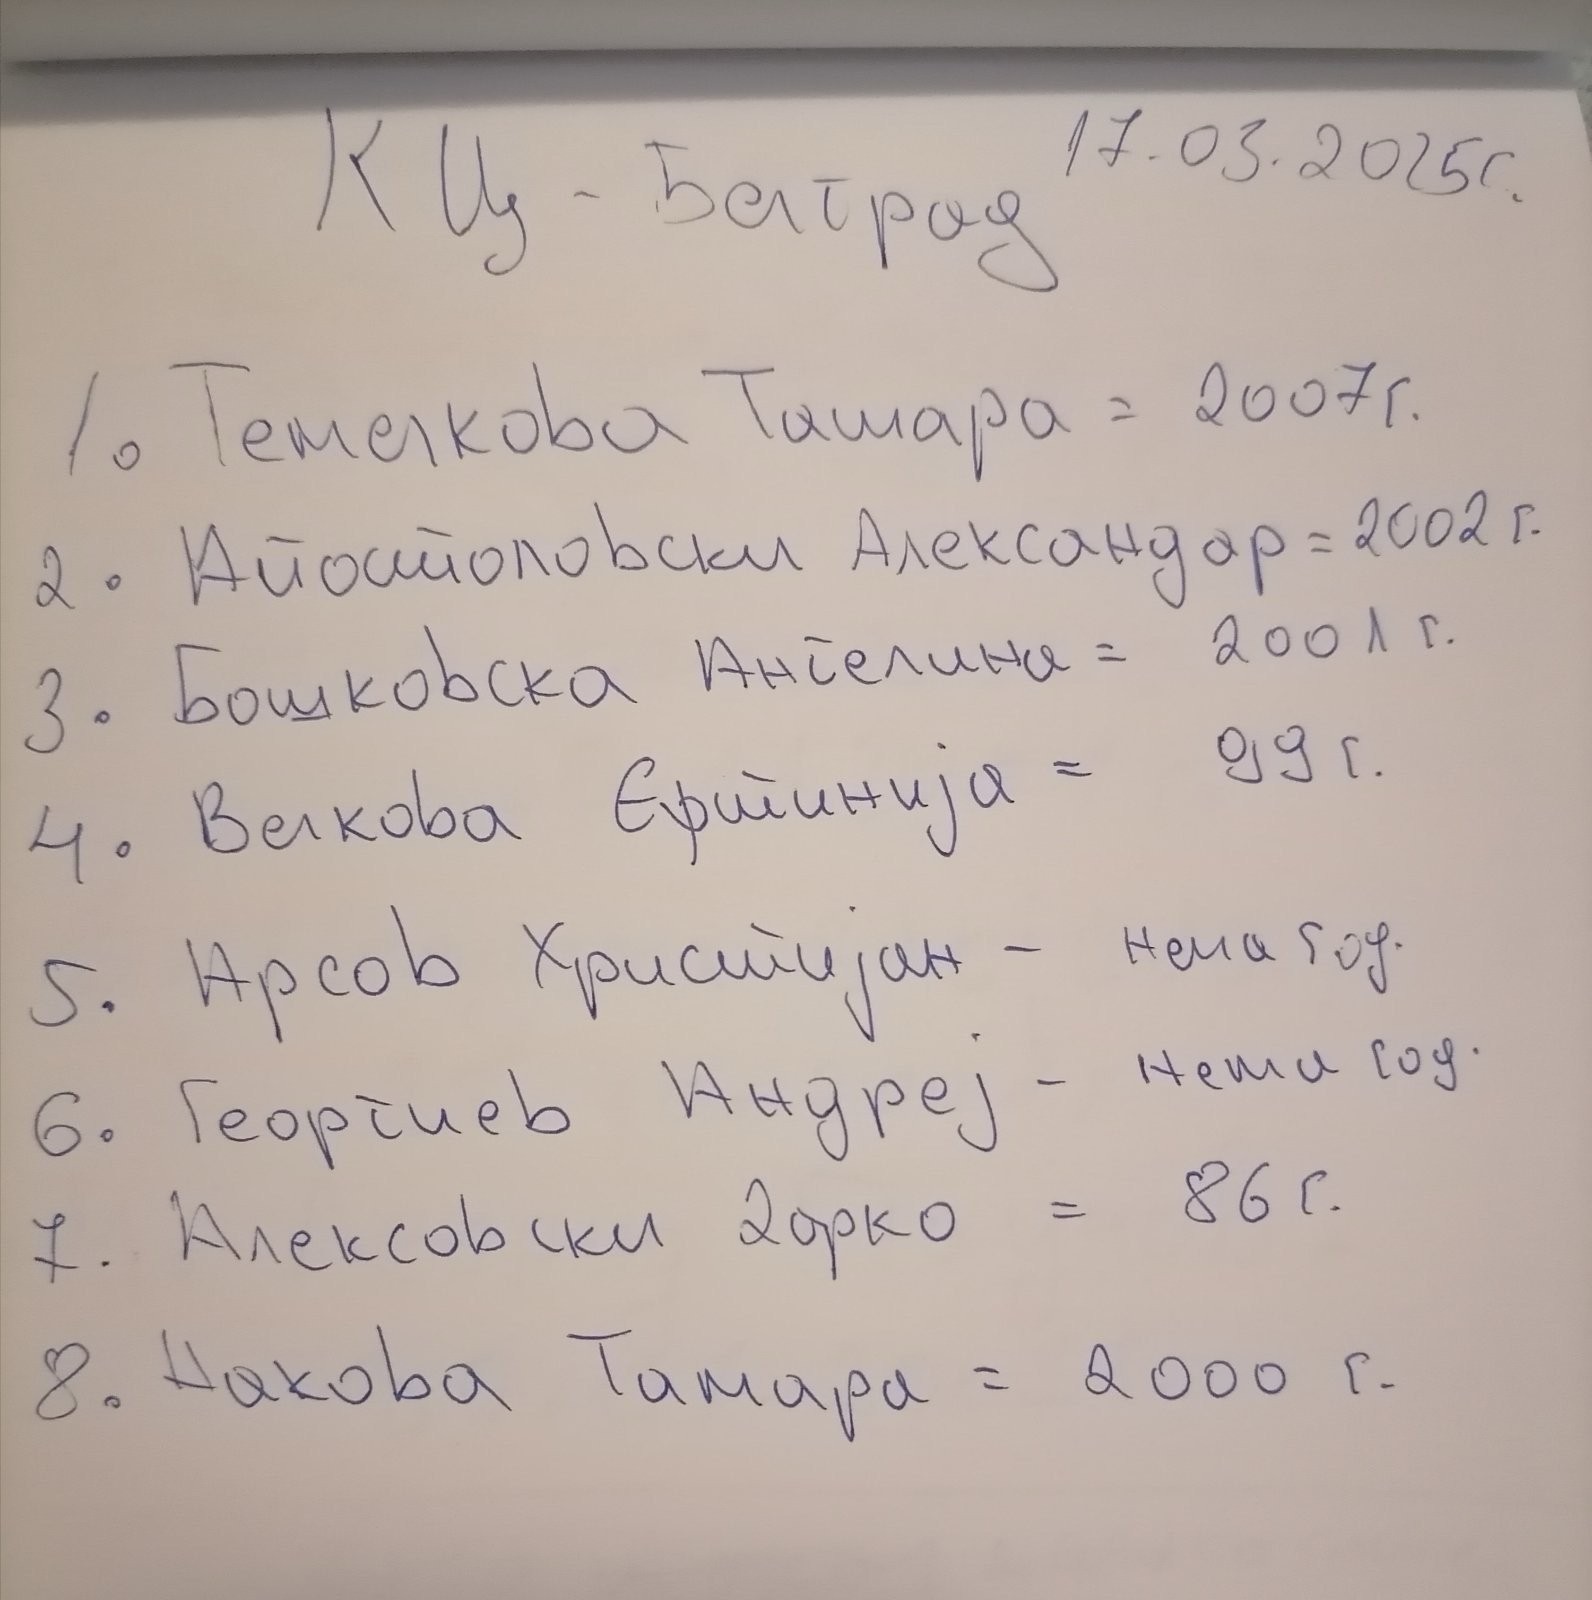 КЦ - Белград 17.03.2025г.
1. Темелкова Тамара = 2007г.
2. Апостоловски Александар = 2002 г.
3. Бошковска Ангелина = 2001 г.
4. Велкова Ефтинија = 99 г.
5. Арсов Христијан - нема год.
6. Георгиев Андреј - нема год.
7. Алексовски Дарко = 86 г.
8. Накова Тамара = 2000 г.